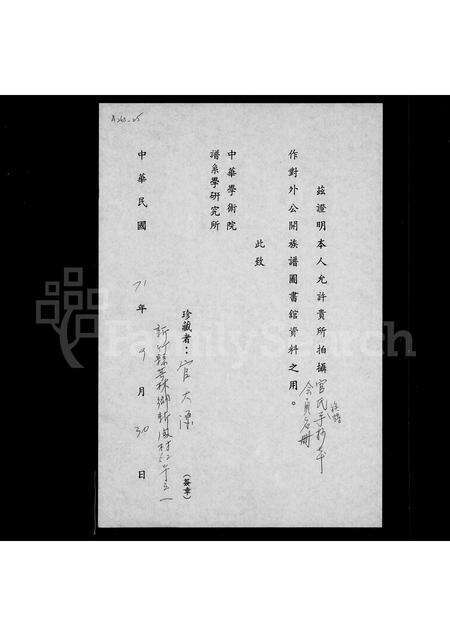 A260-25
茲證明本人允許貴所拍攝官氏手抄本
族譜
會員名冊
作對外公開族譜圖書館資料之用。
此致
中華學術院
譜系學研究所
珍藏者：官大 (簽章)
新竹縣芎林鄉新
中華民國71年9月30日
FamilySearch